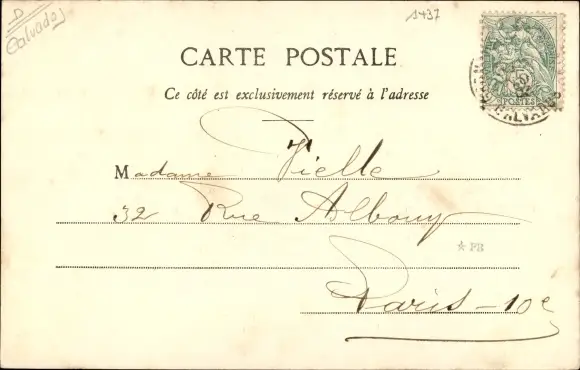 D
Calvados
1437
CARTE POSTALE
Ce côté est exclusivement réservé à l'adresse
POSTES
CALVADOS
Madame Vielle
32 Rue Albouy
PB
Paris - 10e